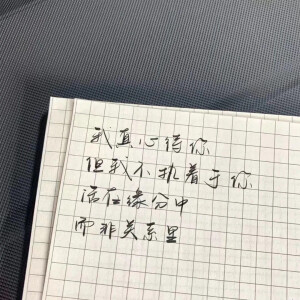 我真心待你
但我不执着于你
活在缘分中
而非关系里